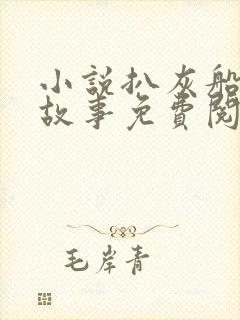 小說扒灰船
故事免費閱
毛岸青